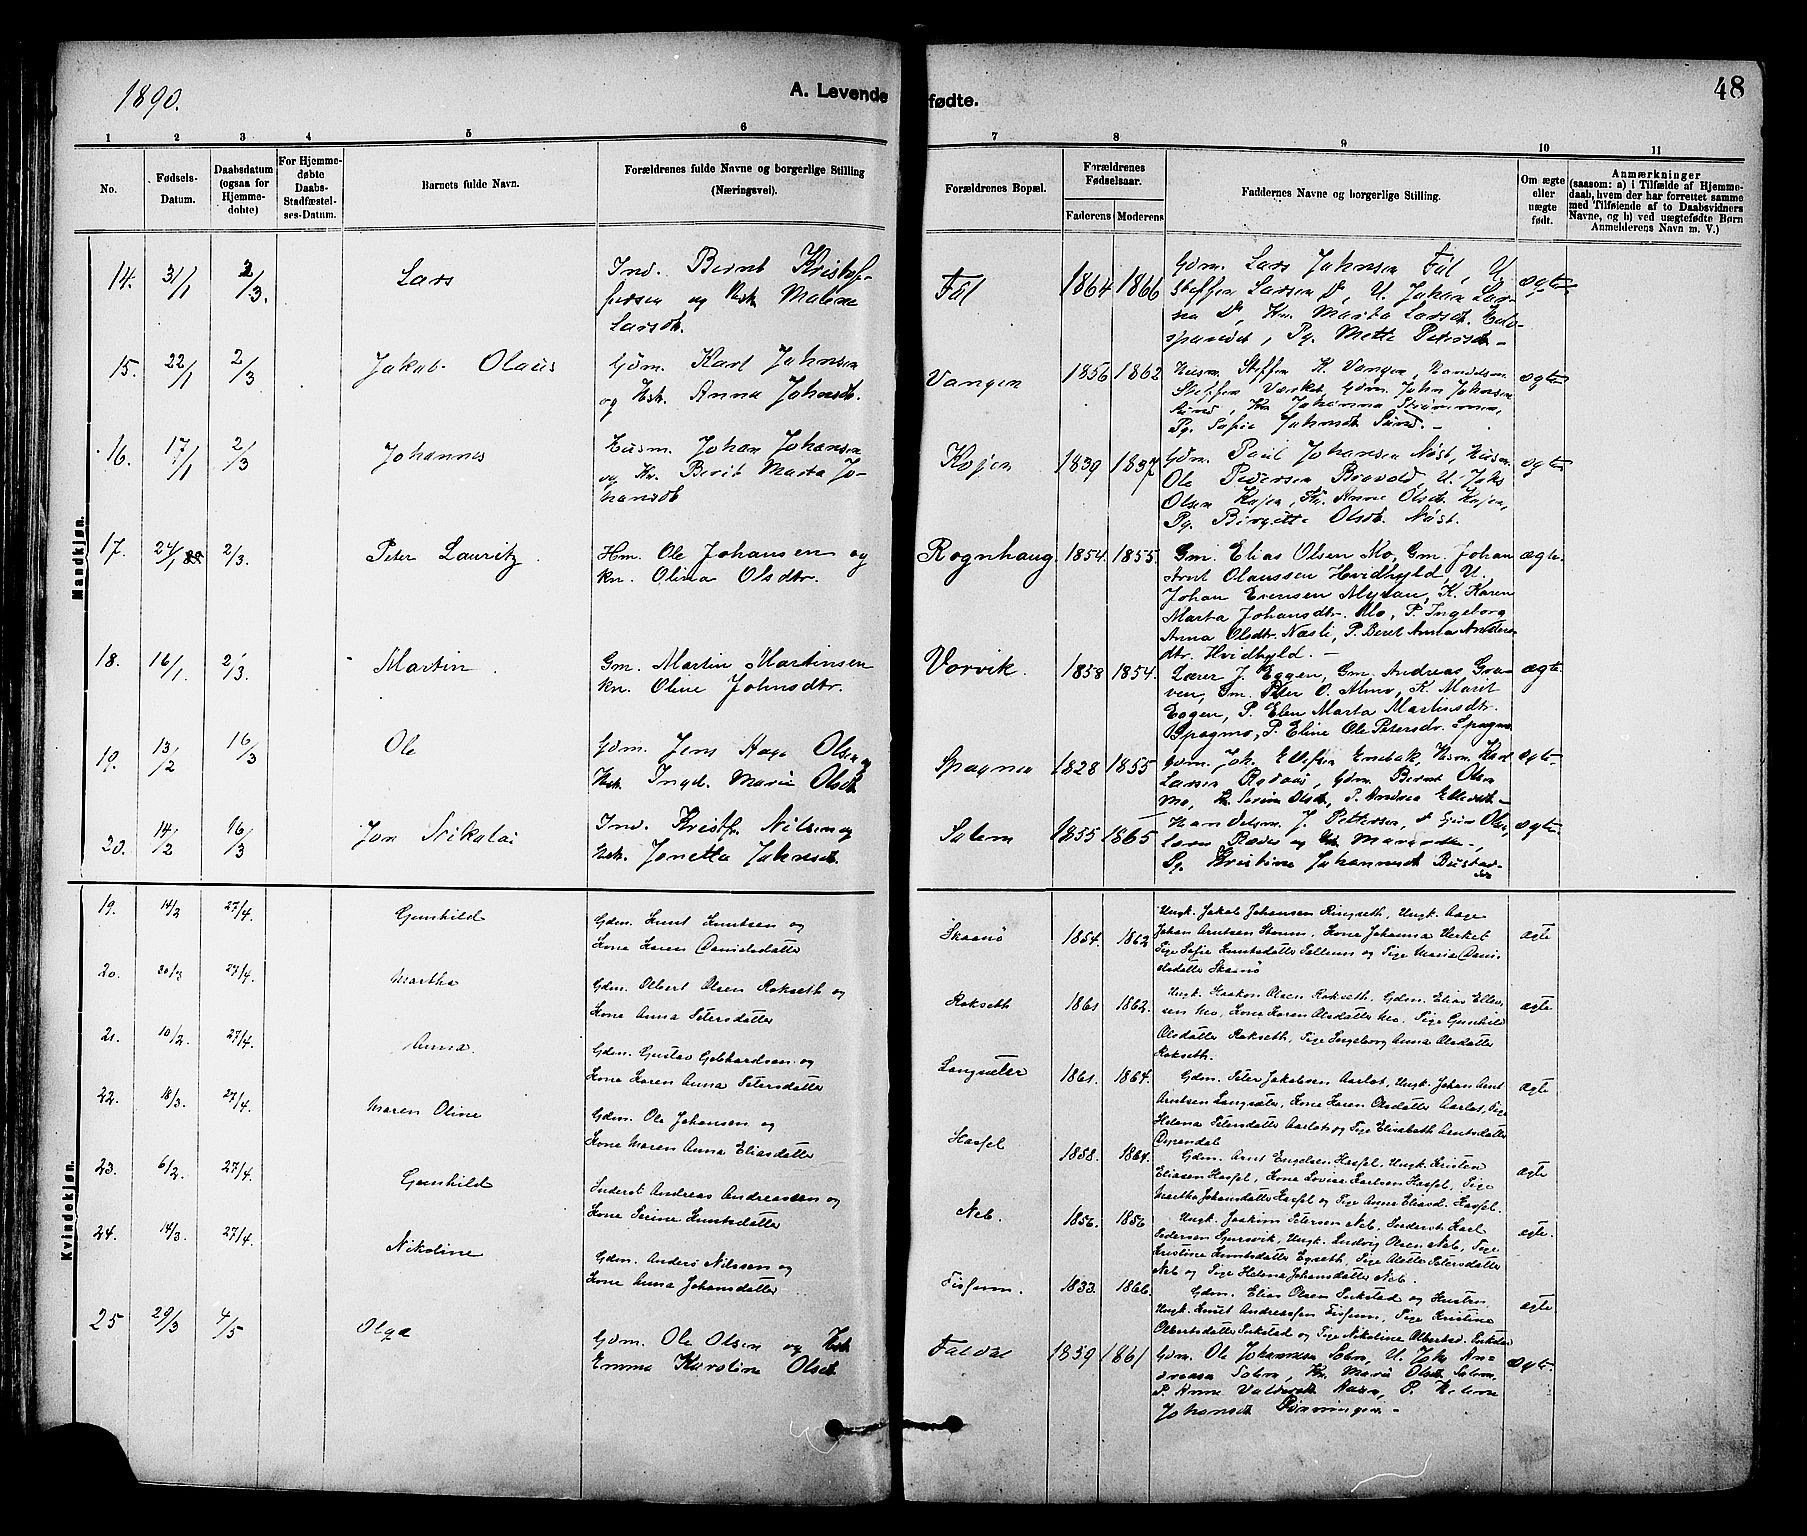 1890.
A. Levende fødte.
48
1 2 3 4 5 6 7 8 9 10 11
No.
Fødsels-Datum.
Daabsdatum (ogsaa for Hjemme-døbte)
For Hjemme-døbte Daabs-Stadfæstel-ses-Datum.
Barnets fulde Navn.
Forældrenes fulde Navne og borgerlige Stilling (Næringsvei).
Forældrenes Bopæl.
Forældrenes Fødselsaar.
Faderens
Moderens
Faddernes Navne og borgerlige Stilling.
Om ægte eller uægte født.
Anmærkninger
(saasom: a) i Tilfælde af Hjemme-
daab, hvem der har forrettet samme
med Tilføiende af to Daabsvidners
Navne, og b) ved uægtefødte Børn
Anmelderens Navn m. V.)
Mandkjøn.
14. 31/1 2/3. Lars
Ind. Bernt Kristof-
fersen og Hstr. Malene
Larsdt.
Fål 1864 1866
Gdm. Lars Johnsen Fål, U.
Steffen Larsen Do, U. Johan Lar-
sen Do, Kn. Marta Larsdt.
Pg. Mette Petersdt.
ægte
15. 22/1 2/3 Jakob Olaus
Gdm. Karl Johnsen
og Hstr. Anna Johnsdt.
Vangen 1856 1862
Husm. Steffen K. Vangen, Handelsm.
Steffen Værket, Gdm. John Johnsen
Sund, Kn Johanna Strømmen,
Pg. Sofie Johnsdt Sund.
ægte
16. 17/1 2/3 Johannes
Husm. Johan Johansen
og Kn. Berit Marta Jo-
hansdt
Kojen 1839 1837
Gdm. Paul Johansen Nøst, Husm.
Ole Pedersen Brovold, U. Johs
Olsen Kojen, Kn. Anne Olsdt. Kojen,
Pg. Birgitte Olsdt. Nøst.
ægte
17. 24/1 89 2/3. Peter Lauritz.
Hm. Ole Johansen og
kn. Olina Olsdtr.
Rognhaug. 1854. 1855.
Gm. Elias Olsen Mo, Gm. Johan
Arnt Olaussen Hvidhyld, U.
Johan Evensen Myran, K. Karen
Marta Johansdtr. Mo, P. Ingeborg
Anna Olsdtr. Næsli, P. Beret Anna Anders-
dtr. Hvidhyld. -
ægte.
18. 16/1. 2/3. Martin.
Gm. Martin Martinsen
kn. Oline Johnsdtr.
Vorvik. 1858 1854.
Lærer J. Eggen, Gm. Andreas Gra-
ven, Gm. Peter O. Almo, K. Marit
Eggen, P. Elen Marta Martinsdtr.
Spagmo, P. Eline Ole Petersdr. Spagmo
ægte.
19. 13/2 16/3 Ole
Gdm. Jens Aage Olsen og
Hstr. Ingeb. Marie Olsdt
Spagmo 1828 1855
Gdm. Joh. Ellefsen Husm. Karl
Larsen Gdm. Bernt Olsen
Mo, Kn Serine Olsdt, P. Andrea Ellevsdt
ægte
20. 14/2 16/3 Jon Nikolai
Ind. Kristf. Nilsen og
Hstr. Jonetta Johnsdt.
Solem 1855 1865
Handelsm. J. Pettersen, Olen,
Pg. Kristine Johannesdt
ægte
Kvindekjøn.
19. 14/2 27/4. Gunhild
Gdm. Knut Knutsen og
Kone Karen Danielsdatter
Skaanø 1854. 1862
Ungk. Jakob Johansen Ringseth, Ungk. Aage
Johan Arntsen Stomm, Kone Johanna Verket
Pige Sofie Knutsdatter Tellum og Pige Maria Dani-
elsdatter Skaanø
ægte
20. 30/3 27/4. Martha
Gdm. Olbert Olsen Rokseth og
Kone Anna Petersdatter
Rokseth 1861 1862.
Ungk. Haakon Olsen Rokseth, Gdm. Elias Ellev-
sen Mo, Kone Karen Olsdatter Mo, Pige Gunhild
Olsdatter Rokseth, Pige Ingeborg Anna Olsdatter
Rokseth.
ægte
21. 10/2. 27/4. Anna.
Gdm. Gustav Gebhardsen og
Kone Karen Anna Petersdatter
Langsæter 1861. 1864.
Gdm. Peter Jakobsen Aarlot, Ungk. Johan Arnt
Arntsen Langsæter, Kone Karen Olsdatter Aarlot, Pige
Helena Petersdatter Aarlot og Pige Elisabeth Arntsdatter
Dyrendal
ægte
22. 18/3. 27/4. Maren Oline
Gdm. Ole Johansen og
Kone Maren Anna Eliasdatter
Hasfel 1858. 1864.
Gdm. Arnt Engelsen Hasfel, Ungk. Kristen
Eliasen Hasfel, Kone Lovise Karlsen Hasfel, Pige
Martha Johansdatter Hasfel og Pige Anne Eliasd. Hasfel.
ægte
23. 6/2. 27/4. Gunhild
Inderst Andreas Andreassen og
Kone Serine Knutsdatter
Neb. 1856. 1856
Ungk. Joakim Petersen Neb, Inderst Karl
Pedersen Spursvik, Ungk. Ludvig Olsen Neb, Pige
Kristine Knutsdatter Egseth, Pige Alette Petersdatter
Neb og Pige Helena Johansdatter Neb.
ægte.
24. 14/3. 27/4. Nikoline
Gdm. Anders Nilssen og
Kone Anna Johansdatter
Fisfum. 1833. 1866.
Gdm. Elias Olsen Inkstad og Hustru,
Ungk. Knut Andreassen Fisfum, Pige Kristine
Olbertsdatter Inkstad og Pige Nikoline Olbertsd. Inkstad
ægte
25 29/3 4/5 Olga
Gdm. Ole Olsen og Hstr.
Emma Karoline Olsdt
Fåldal 1859 1861
Gdm. Ole Johannesen Solem, U. Johs An-
dreasen Solem, Kn. Marie Olsdt Solem,
P. Anne P. Helene
Johansdt
ægte